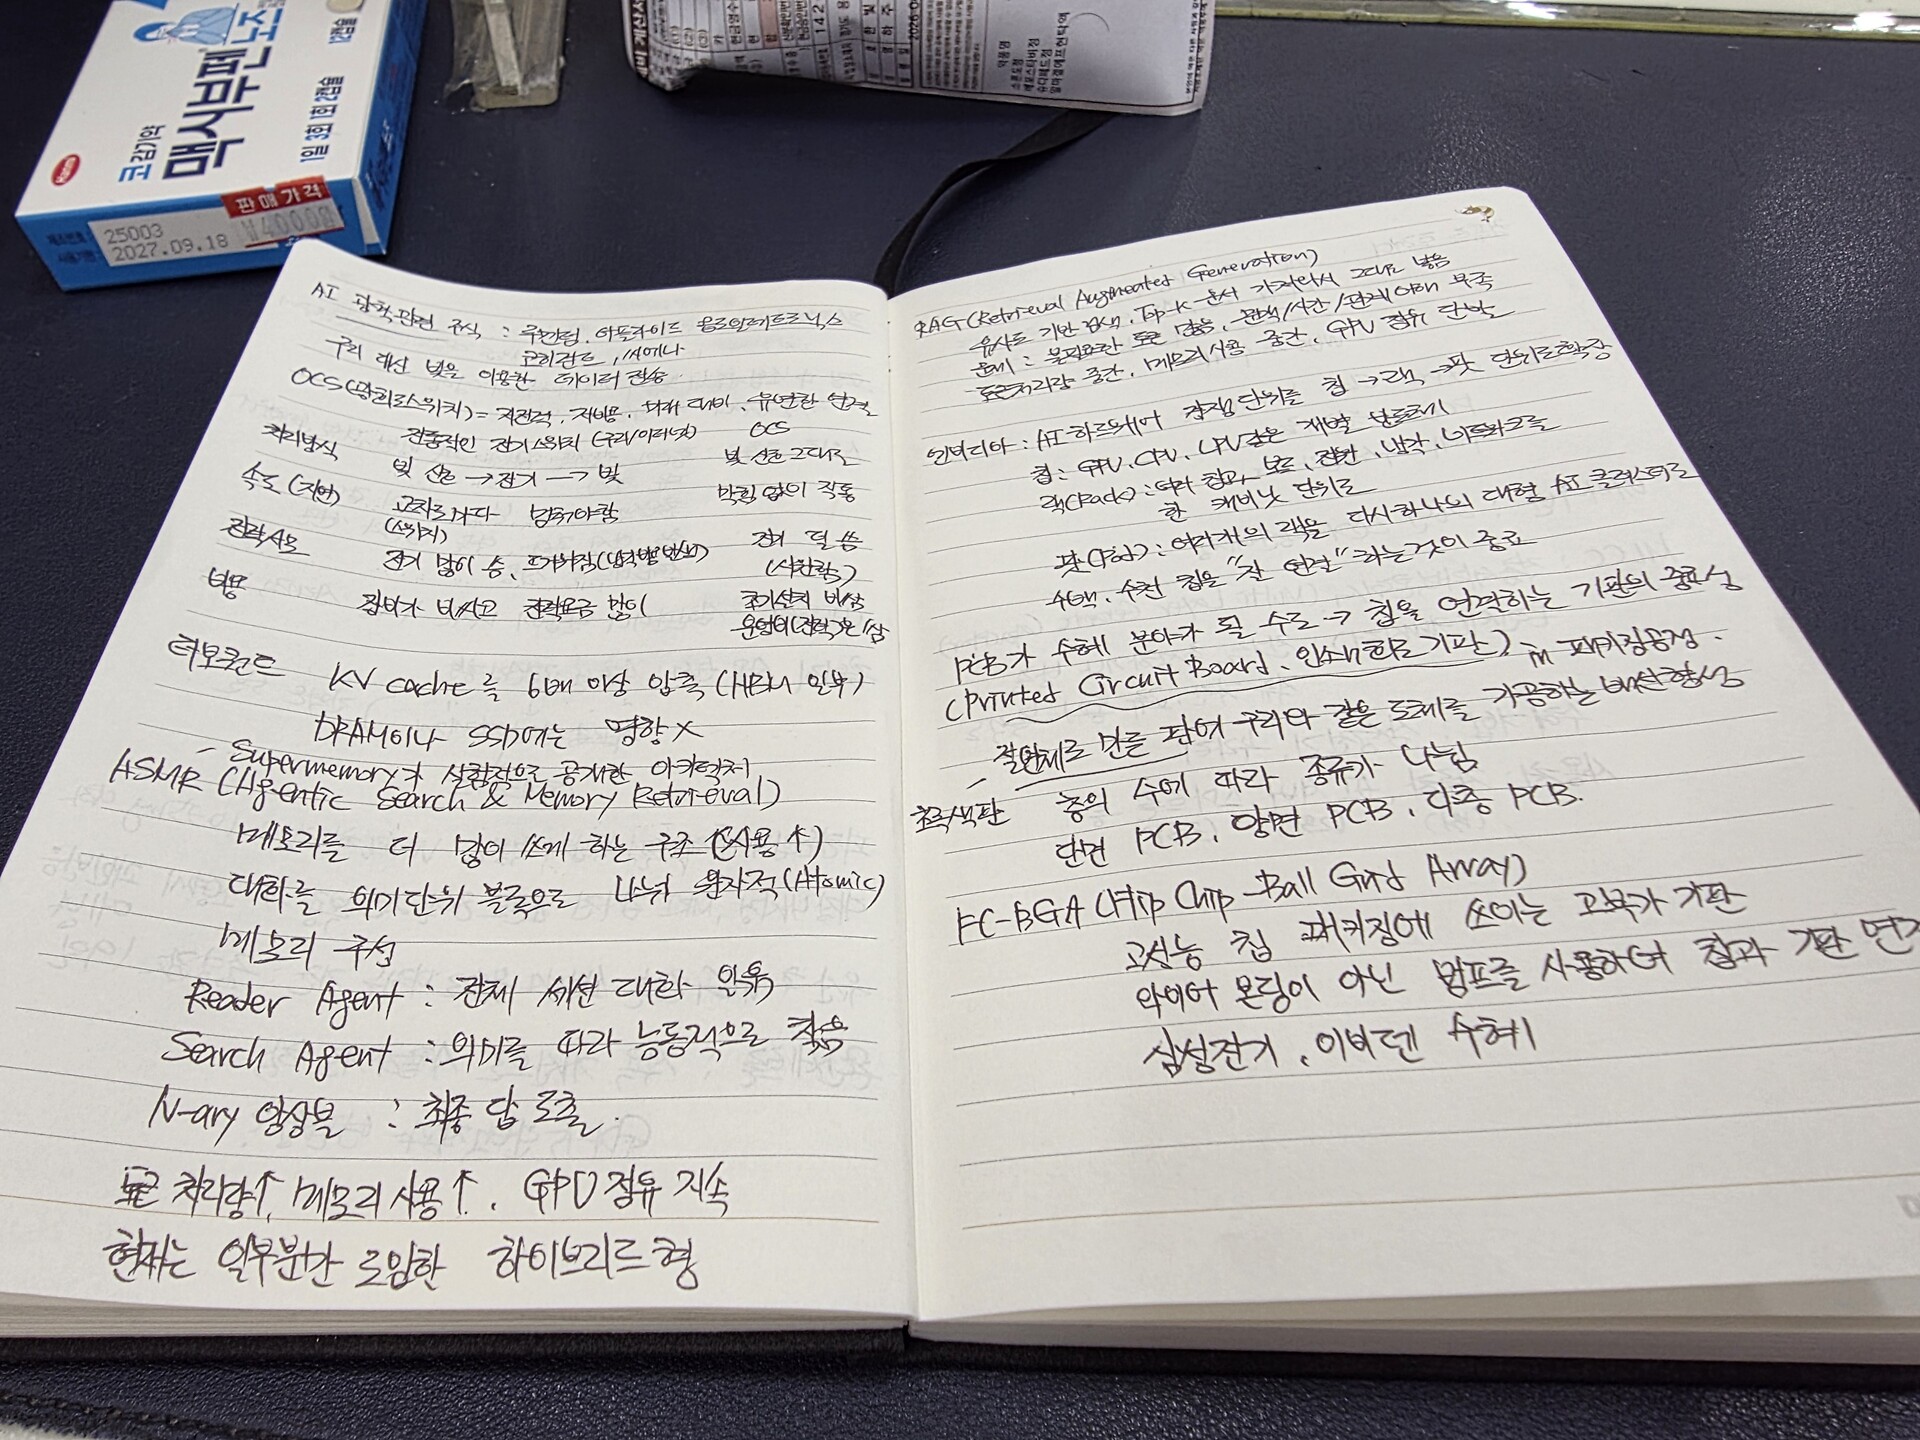 코감기약
맥시부펜
노즈
1일 3회 1회 2캡슐
12캡슐
판매가격
₩4000
25003
2027.09.18
142
소론도정
AI 광학 관련 주식 : 루멘텀, 어플라이드 옵토일렉트로닉스
코히런트, 시에나
구리 대신 빛을 이용한 데이터 전송
OCS(광회로스위치) = 저전력, 저비용, 유연한 연결
처리방식 전통적인 전기스위치 (구리/이더넷) OCS
빛 신호 → 전기 → 빛 빛 신호 그대로
속도(지연) 멈춰야함 막힘 없이 작동
(스위치)
전력소모 전기 많이 씀, 뜨거워짐 전기 덜 씀
비용 장비가 비싸고 전력요금 많이 초기설치 비쌈
운영비(전력)은 쌈
터보퀀트 KV cache를 6배 이상 압축 (HBM 일부)
DRAM이나 SSD에는 영향 X
- Supermemory가 실험적으로 공개한 아키텍처
ASMR (Agentic Search & Memory Retrieval)
메모리를 더 많이 쓰게 하는 구조 (사용↑)
대화를 의미단위 블록으로 나눠 원자적(Atomic)
메모리 구성
Reader Agent : 전체 세션 대화 읽음
Search Agent : 의미를 따라 능동적으로 찾음
N-ary 앙상블 : 최종 답 도출.
토큰 처리량↑, 메모리 사용↑, GPU 점유 지속
현재는 일부분만 도입한 하이브리드형
RAG(Retrieval Augmented Generation)
유사도 기반 검색, Top-K 문서 가져와서 그대로 넣음
문제 : 불필요한 토큰 많음, 문맥/시간/관계 이해 부족
토큰처리량 중간, 메모리 사용 중간, GPU 점유 단발
엔비디아 : AI 하드웨어 경쟁 단위를 칩 → 랙 → 팟 단위로 확장
칩 : GPU, CPU, LPU 같은 개별 반도체
랙(Rack) : 여러 칩과 보드, 전원, 냉각, 네트워크를
한 캐비닛 단위로
팟(Pod) : 여러개의 랙을 다시 하나의 대형 AI 클러스터로
수백, 수천 칩을 "잘 연결"하는 것이 중요
PCB가 수혜 분야가 될 수도 → 칩을 연결하는 기판의 중요성
(Printed Circuit Board, 인쇄회로기판) in 패키징공정.
- 절연체로 만든 판에 구리와 같은 도체를 가공하는 배선형성
초록색판 층의 수에 따라 종류가 나뉨
단면 PCB, 양면 PCB, 다층 PCB.
FC-BGA (Flip Chip-Ball Grid Array)
고성능 칩 패키징에 쓰이는 고부가 기판
와이어 본딩이 아닌 범프를 사용하여 칩과 기판 연결
삼성전기, 이비덴 수혜